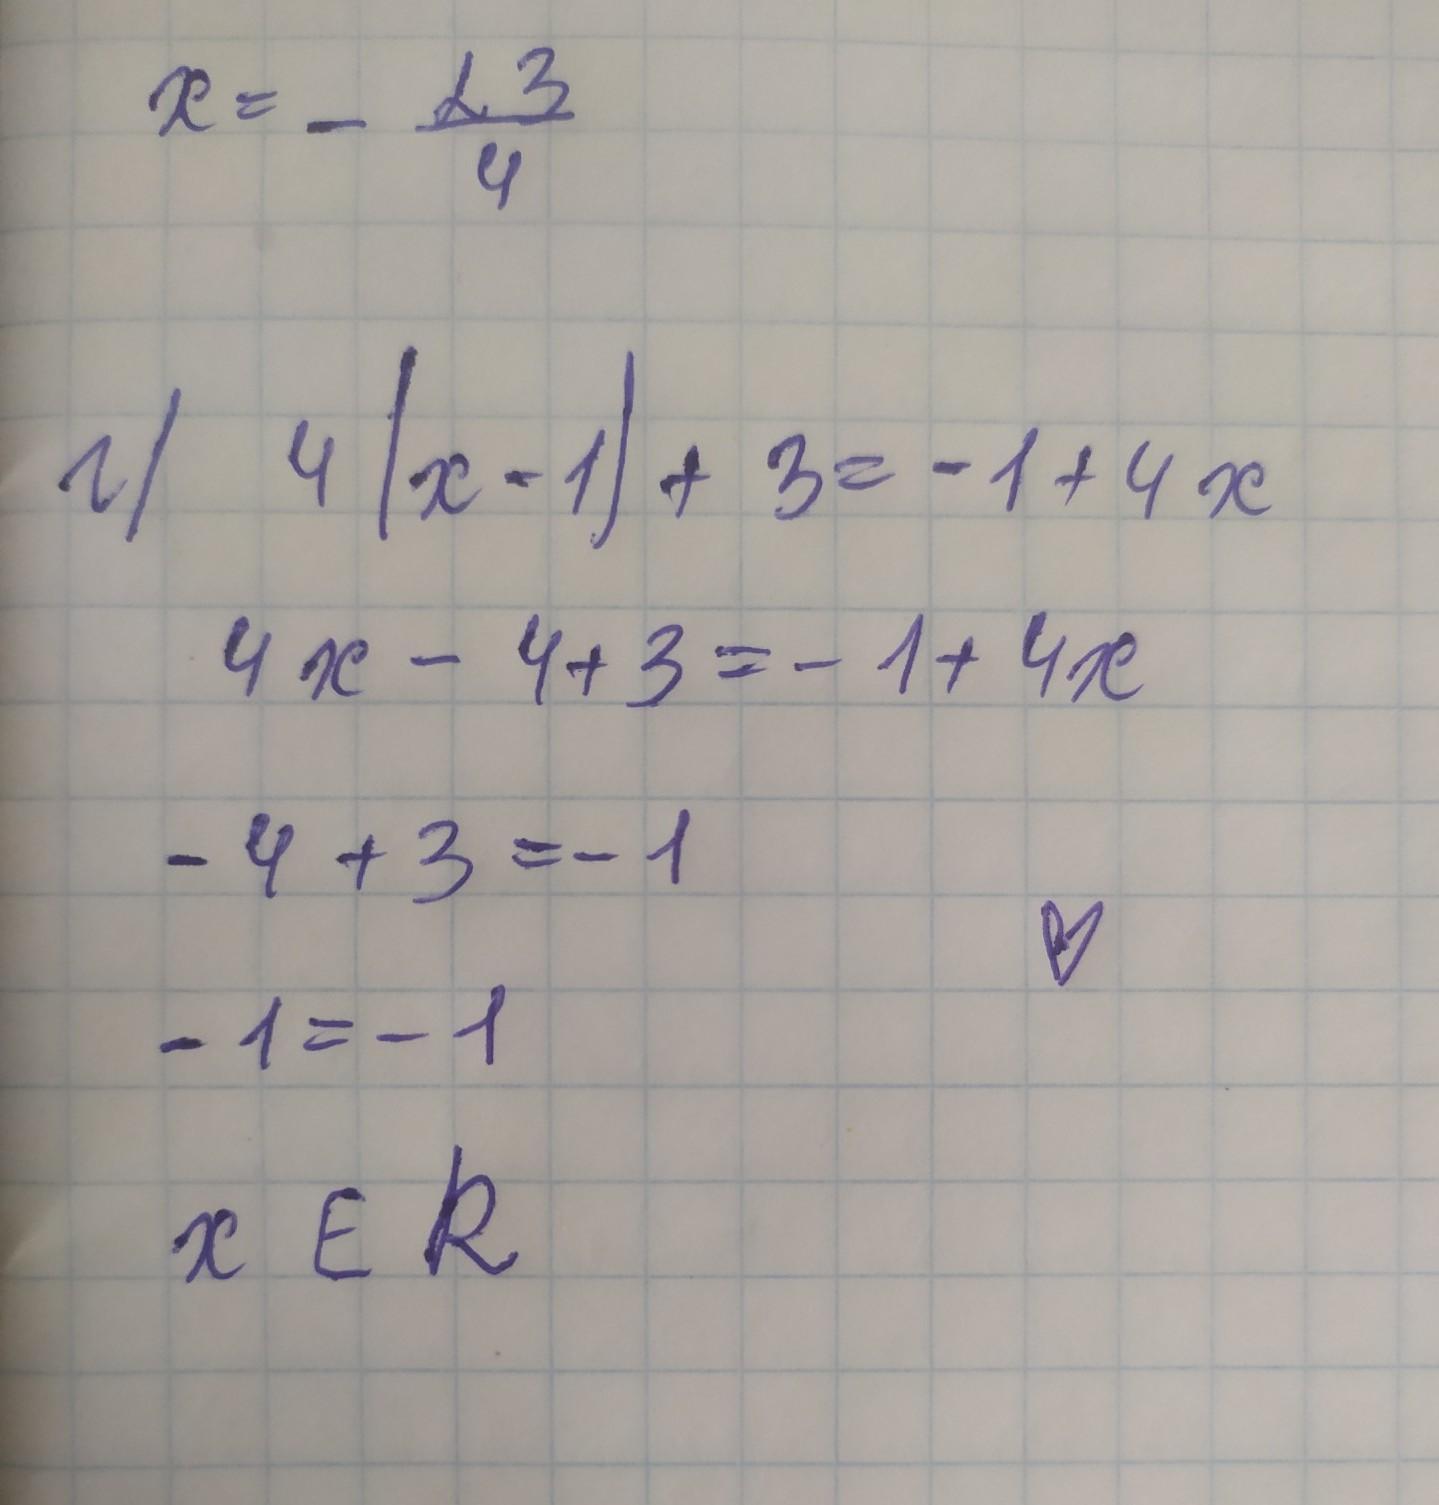 x = - 23/4
г) 4(x-1) + 3 = -1 + 4x
4x - 4 + 3 = - 1 + 4x
- 4 + 3 = - 1
- 1 = - 1
x ∈ R